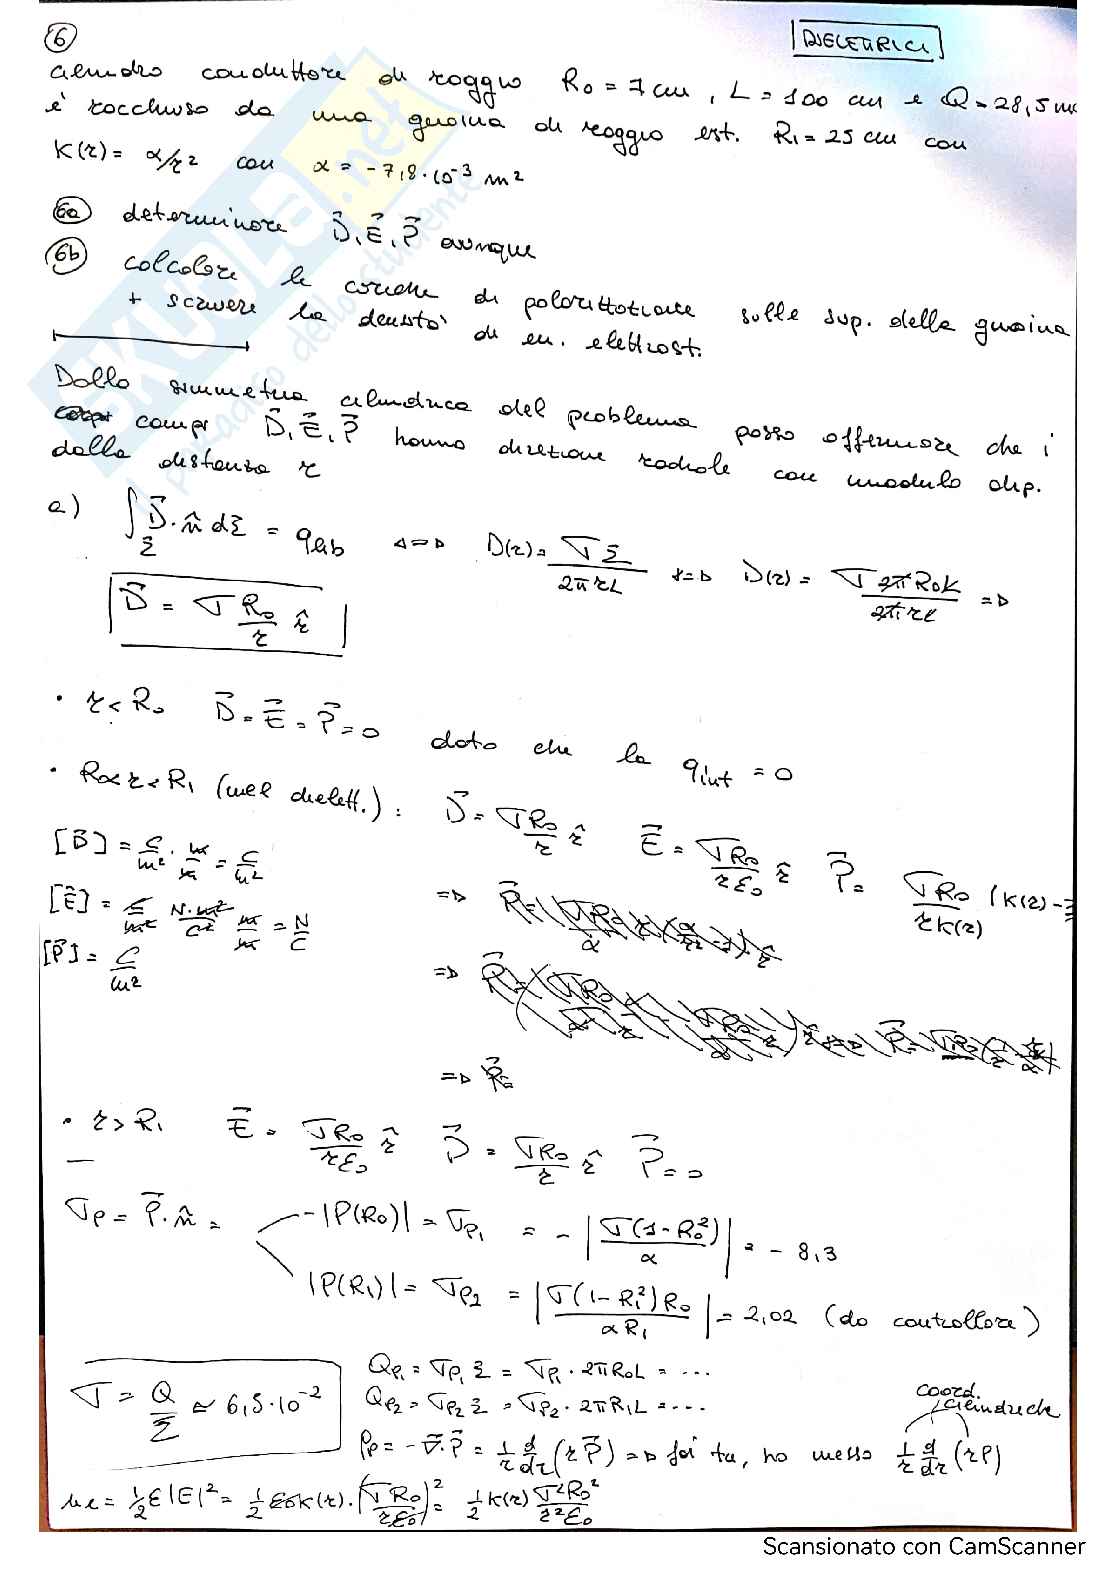 6
DIELETTRICI
cilindro conduttore di raggio R₀ = 7 cm, L = 100 cm e Q = 28,5 mC
è racchiuso da una guaina di raggio est. R₁ = 25 cm con
K(r) = α/r² con α = -7,8·10⁻³ m²
6a determinare D⃗, E⃗, P⃗ ovunque
6b calcolare le cariche di polarizzazione sulle sup. della guaina
+ scrivere la densità di en. elettrost.
Dalla simmetria cilindrica del problema posso affermare che i
campi D⃗, E⃗, P⃗ hanno direzione radiale con modulo dip.
dalla distanza r
a) ∫_Σ D⃗·n̂ dΣ = q_lib ⇔ D(r) = σΣ/2πrL ⇒ D(r) = σ2πR₀L/2πrL ⇒
D⃗ = σ R₀/r r̂
• r < R₀ D⃗ = E⃗ = P⃗ = 0 dato che la q_int = 0
• R₀<r<R₁ (nel dielett.): D⃗ = σR₀/r r̂ E⃗ = σR₀/rε₀ r̂ P⃗ = σR₀/rK(r) (K(r) -1
[D⃗] = C/m² · m/m = C/m²
[E⃗] = C/m² N·m²/C² m/m = N/C
[P⃗] = C/m²
• r > R₁ E⃗ = σR₀/rε₀ r̂ D⃗ = σR₀/r r̂ P⃗ = 0
σ_P = P⃗·n̂ = -|P(R₀)| = σ_P₁ = -|σ(1-R₀²)/α| = -8,3
|P(R₁)| = σ_P₂ = |σ(1-R₁²)R₀/αR₁| = 2,02 (da controllare)
σ = Q/Σ ≃ 6,5·10⁻²
Q_P₁ = σ_P₁ Σ = σ_P₁ · 2πR₀L = ...
Q_P₂ = σ_P₂ Σ = σ_P₂ · 2πR₁L = ...
coord. cilindriche
ρ_P = -∇⃗·P⃗ = 1/r d/dr (rP⃗) ⇒ fai tu, ho messo 1/r d/dr (rP)
u_e = ½ε|E|² = ½ε₀K(r)·(σR₀/rε₀)² = ½K(r) σ²R₀²/r²ε₀
Scansionato con CamScanner
SKUOLA.net
il paradiso dello studente